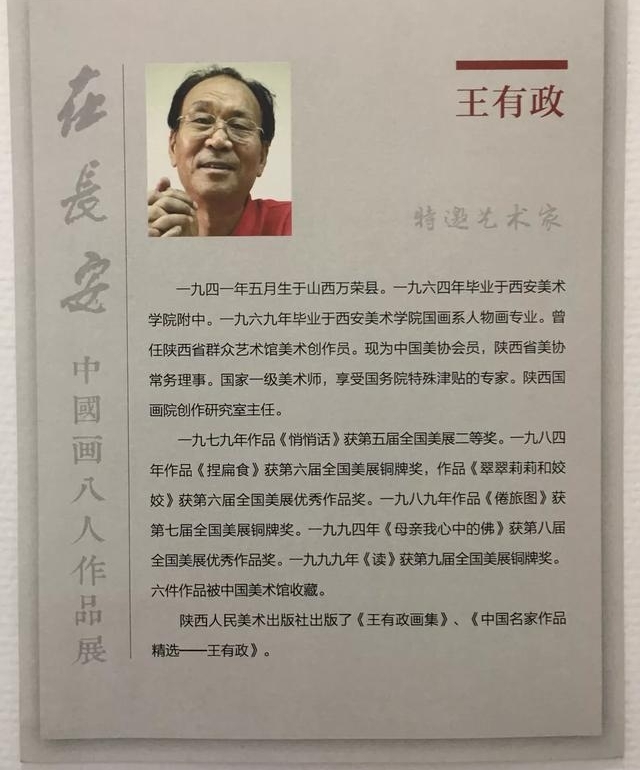 在長安
中國画八人作品展
王有政
特邀艺术家
一九四一年五月生于山西万荣县。一九六四年毕业于西安美术
学院附中。一九六九年毕业于西安美术学院国画系人物画专业。曾
任陕西省群众艺术馆美术创作员。现为中国美协会员，陕西省美协
常务理事。国家一级美术师，享受国务院特殊津贴的专家。陕西国
画院创作研究室主任。
一九七九年作品《悄悄话》获第五届全国美展二等奖。一九八四
年作品《捏扁食》获第六届全国美展铜牌奖，作品《翠翠莉莉和姣
姣》获第六届全国美展优秀作品奖。一九八九年作品《倦旅图》获
第七届全国美展铜牌奖。一九九四年《母亲我心中的佛》获第八届
全国美展优秀作品奖。一九九九年《读》获第九届全国美展铜牌奖。
六件作品被中国美术馆收藏。
陕西人民美术出版社出版了《王有政画集》、《中国名家作品
精选——王有政》。